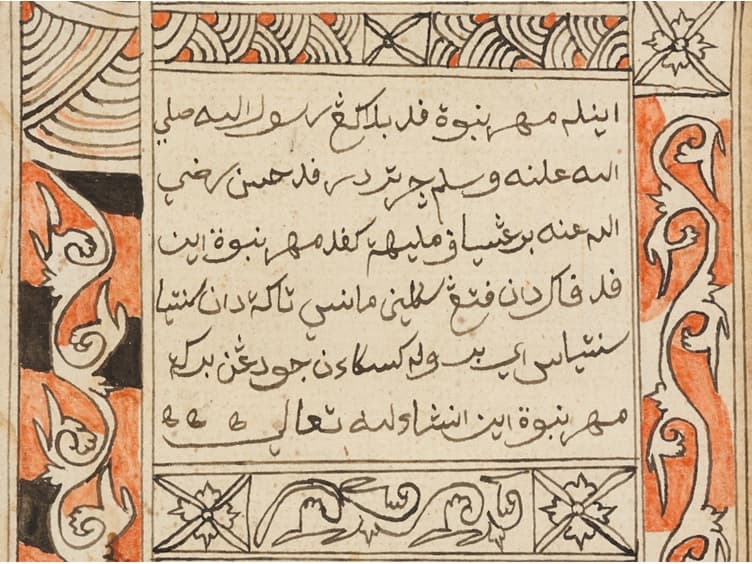 اينله مهر نبوة فد بلاكڠ رسول الله صلي
الله عليه وسلم چريتر در فد حسن رضي
الله عنه برڠسياف مليهة كفد مهر نبوة اين
فد فاك دان فتڠ سكلين مانسي تاكة دان سنتيا
سنتياس اي بروله كسكاءن جود ڠن بركة
مهر نبوة اين انشاء الله تعالي